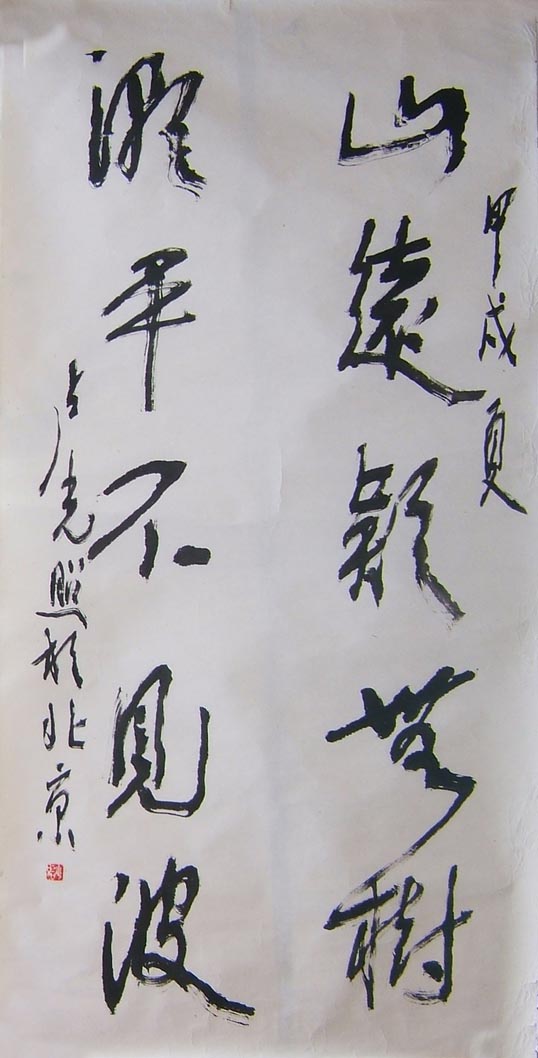 甲戌夏
山遠疑無樹
潮平不見波
卢光照於北京